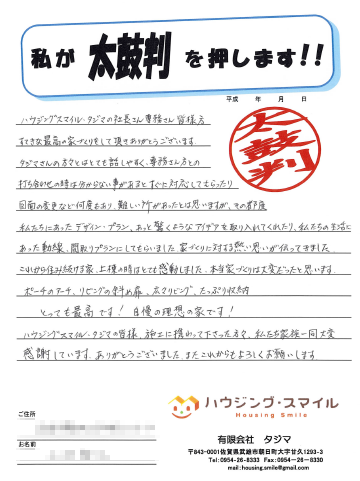 私が 太鼓判 を押します!!
平成　年　月　日
太鼓判
ハウジングスマイル・タジマの社長さん専務さん皆様方
すてきな最高の家づくりをして頂きありがとうございます。
タジマさんの方々とはとても話しやすく、専務さん方との
打ち合わせの時は分からない事があるとすぐに対応してもらったり
図面の変更など何度もあり、難しい所があったとは思いますが、その都度
私たちにあったデザイン・プラン、あっと驚くようなアイデアを取り入れてくれたり、私たちの生活に
あった動線、間取りプランにしてもらいました。家づくりに対する熱い思いが伝ってきました。
これから住み続ける家、上棟の時はとても感動しました。本当家づくりは大変だったと思います。
ポーチのアーチ、リビングの斜め扉、広々リビング、たっぷり収納
とっても最高です！自慢の理想の家です！
ハウジングスマイル・タジマの皆様、施工に携わって下さった方々、私たち家族一同大変
感謝しています。ありがとうございました。またこれからもよろしくお願いします。
ハウジング・スマイル
Housing Smile
ご住所
お名前
有限会社　タジマ
〒843-0001佐賀県武雄市朝日町大字甘久1293-3
Tel:0954-26-8333　Fax:0954-26-8330
mail:housing.smile@gmail.com